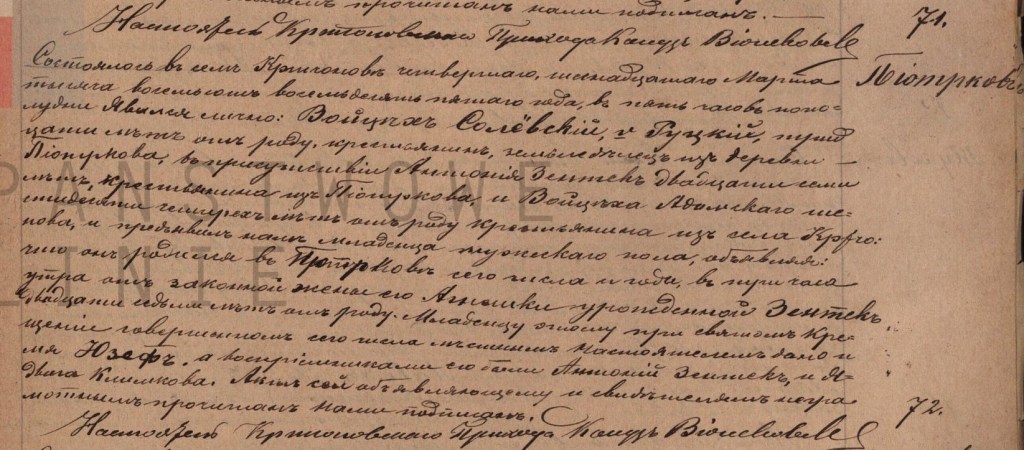 прочитанъ нами подписанъ. —
Настоятель Кржчоновскаго Прихода Ксендзъ
71.
Піотрковъ
Состоялось въ селѣ Кржчоновѣ четвертаго, шестнадцатаго Марта
тысяча восемьсотъ восемьдесятъ пятаго года, въ пять часовъ попо-
лудни Явился лично: Войцѣхъ Солёвскій, v Гуцкій, трид
цати лѣтъ отъ роду, крестьянинъ, земледѣлецъ изъ деревни
Піотркова, въ присутствіи Антонія Зентекъ двадцати семи
лѣтъ, крестьянина изъ Піотркова, и Войцѣха Адамскаго ше-
стидесяти четырехъ лѣтъ отъ роду крестьянина изъ села Кржчо:
нова, и предъявилъ намъ младенца мужескаго пола, объявляя:
что онъ родился въ Піотрковѣ сего числа и года, въ три часа
утра отъ законной жены его Агнѣшки урожденной Зентекъ,
двадцати седьми лѣтъ отъ роду. Младенцу этому при святомъ Кре-
щеніи совершенномъ сего числа мѣстнымъ настоятелемъ дано и
мя Юзефъ, а воспріемниками его были Антоній Зентекъ, и Я-
двига Климкова. Актъ сей объявляющему и свидѣтелямъ негра
мотнымъ прочитанъ нами подписанъ.
Настоятель Кржчоновскаго Прихода Ксендзъ
72.
PAŃSTWOWE